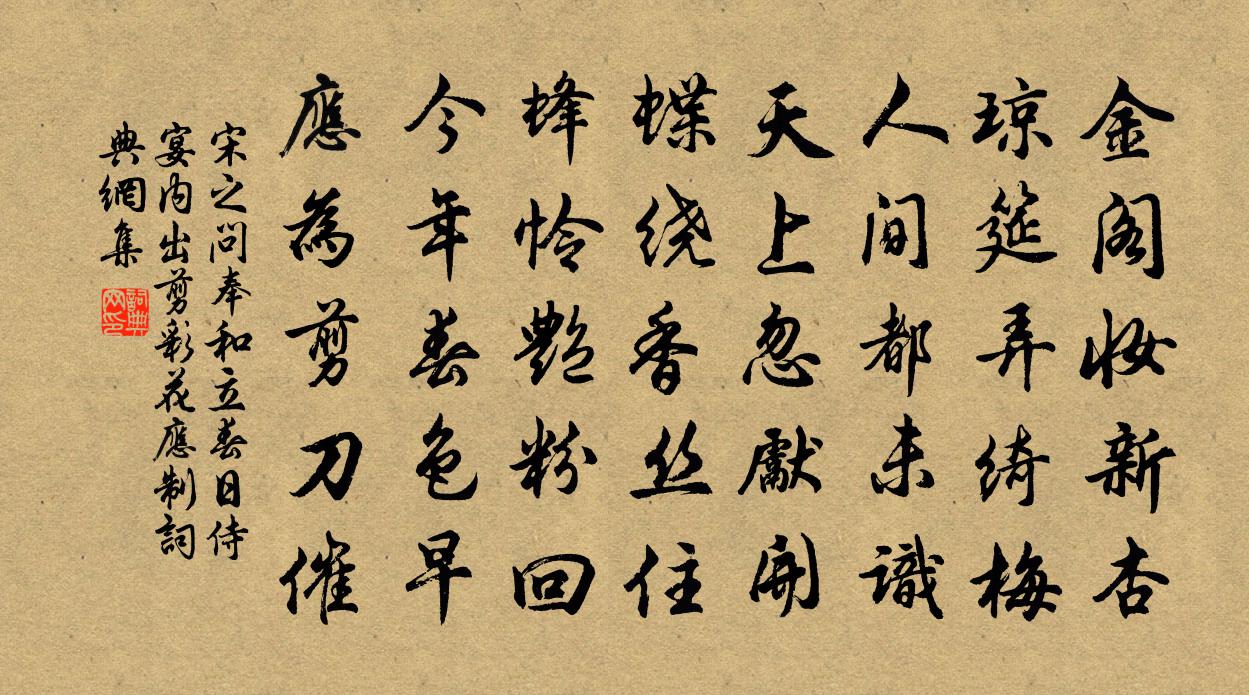 金阁妆新杏
琼筵弄绮梅
人间都未識
天上忽獻開
蝶绕香丝住
蜂怜艷粉回
今年春色早
應為剪刀催
宋之问奉和立春日侍
宴内出剪彩花應制詞
典網集
詞典
网印